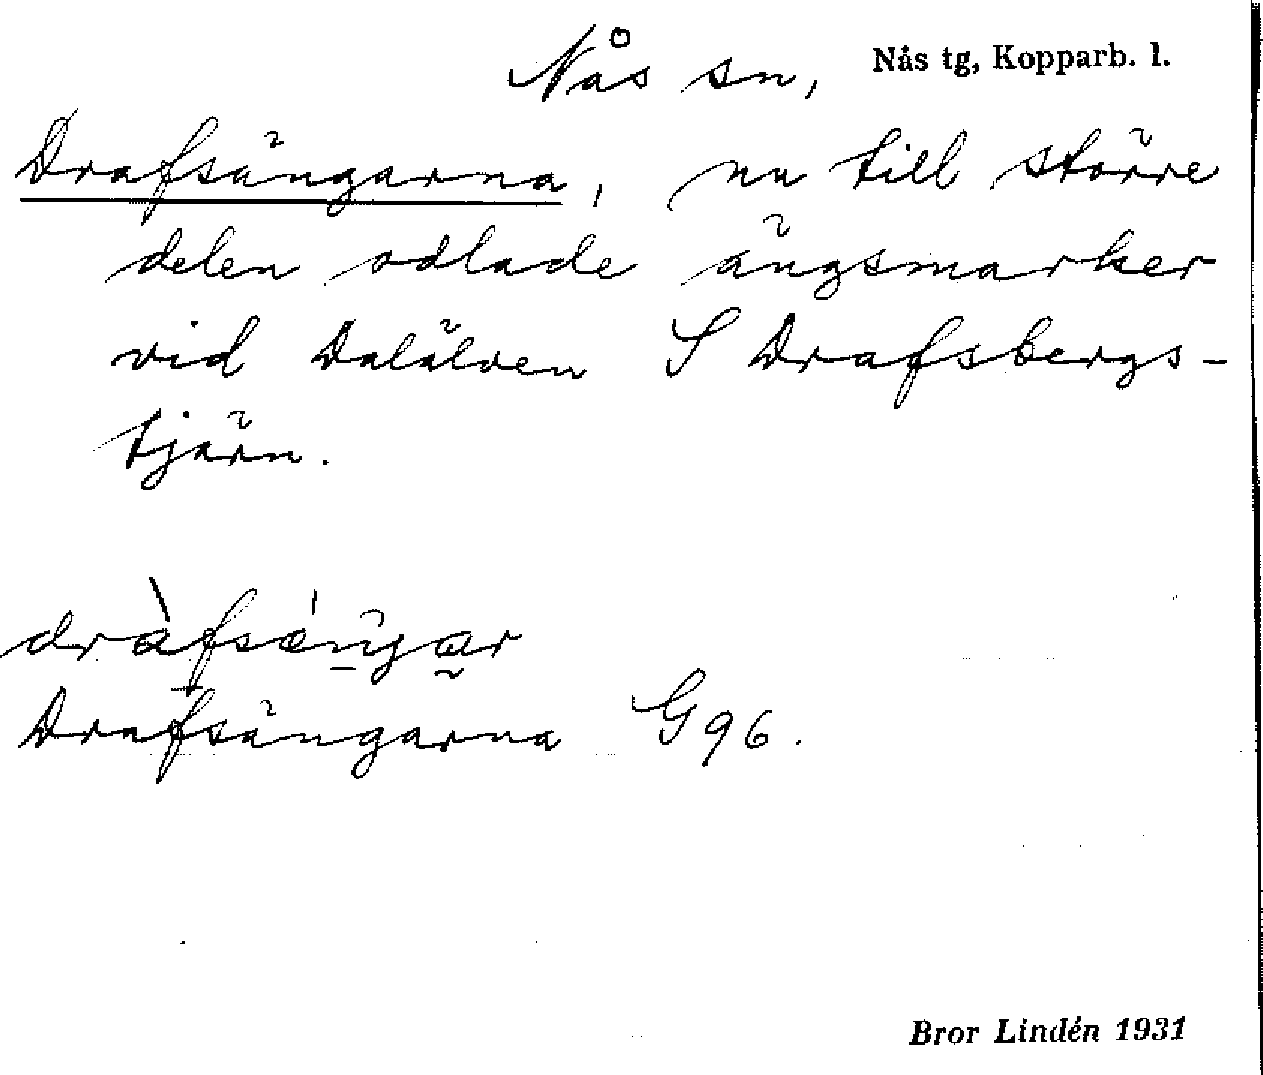 Nås sn, Nås tg, Kopparb. l.
Drafsängarna, nu till större
delen odlade ängsmarker
vid Dalälven S Drafsbergs-
tjärn.
dràfsängar
Drafsängarna G 96.
Bror Lindén 1931